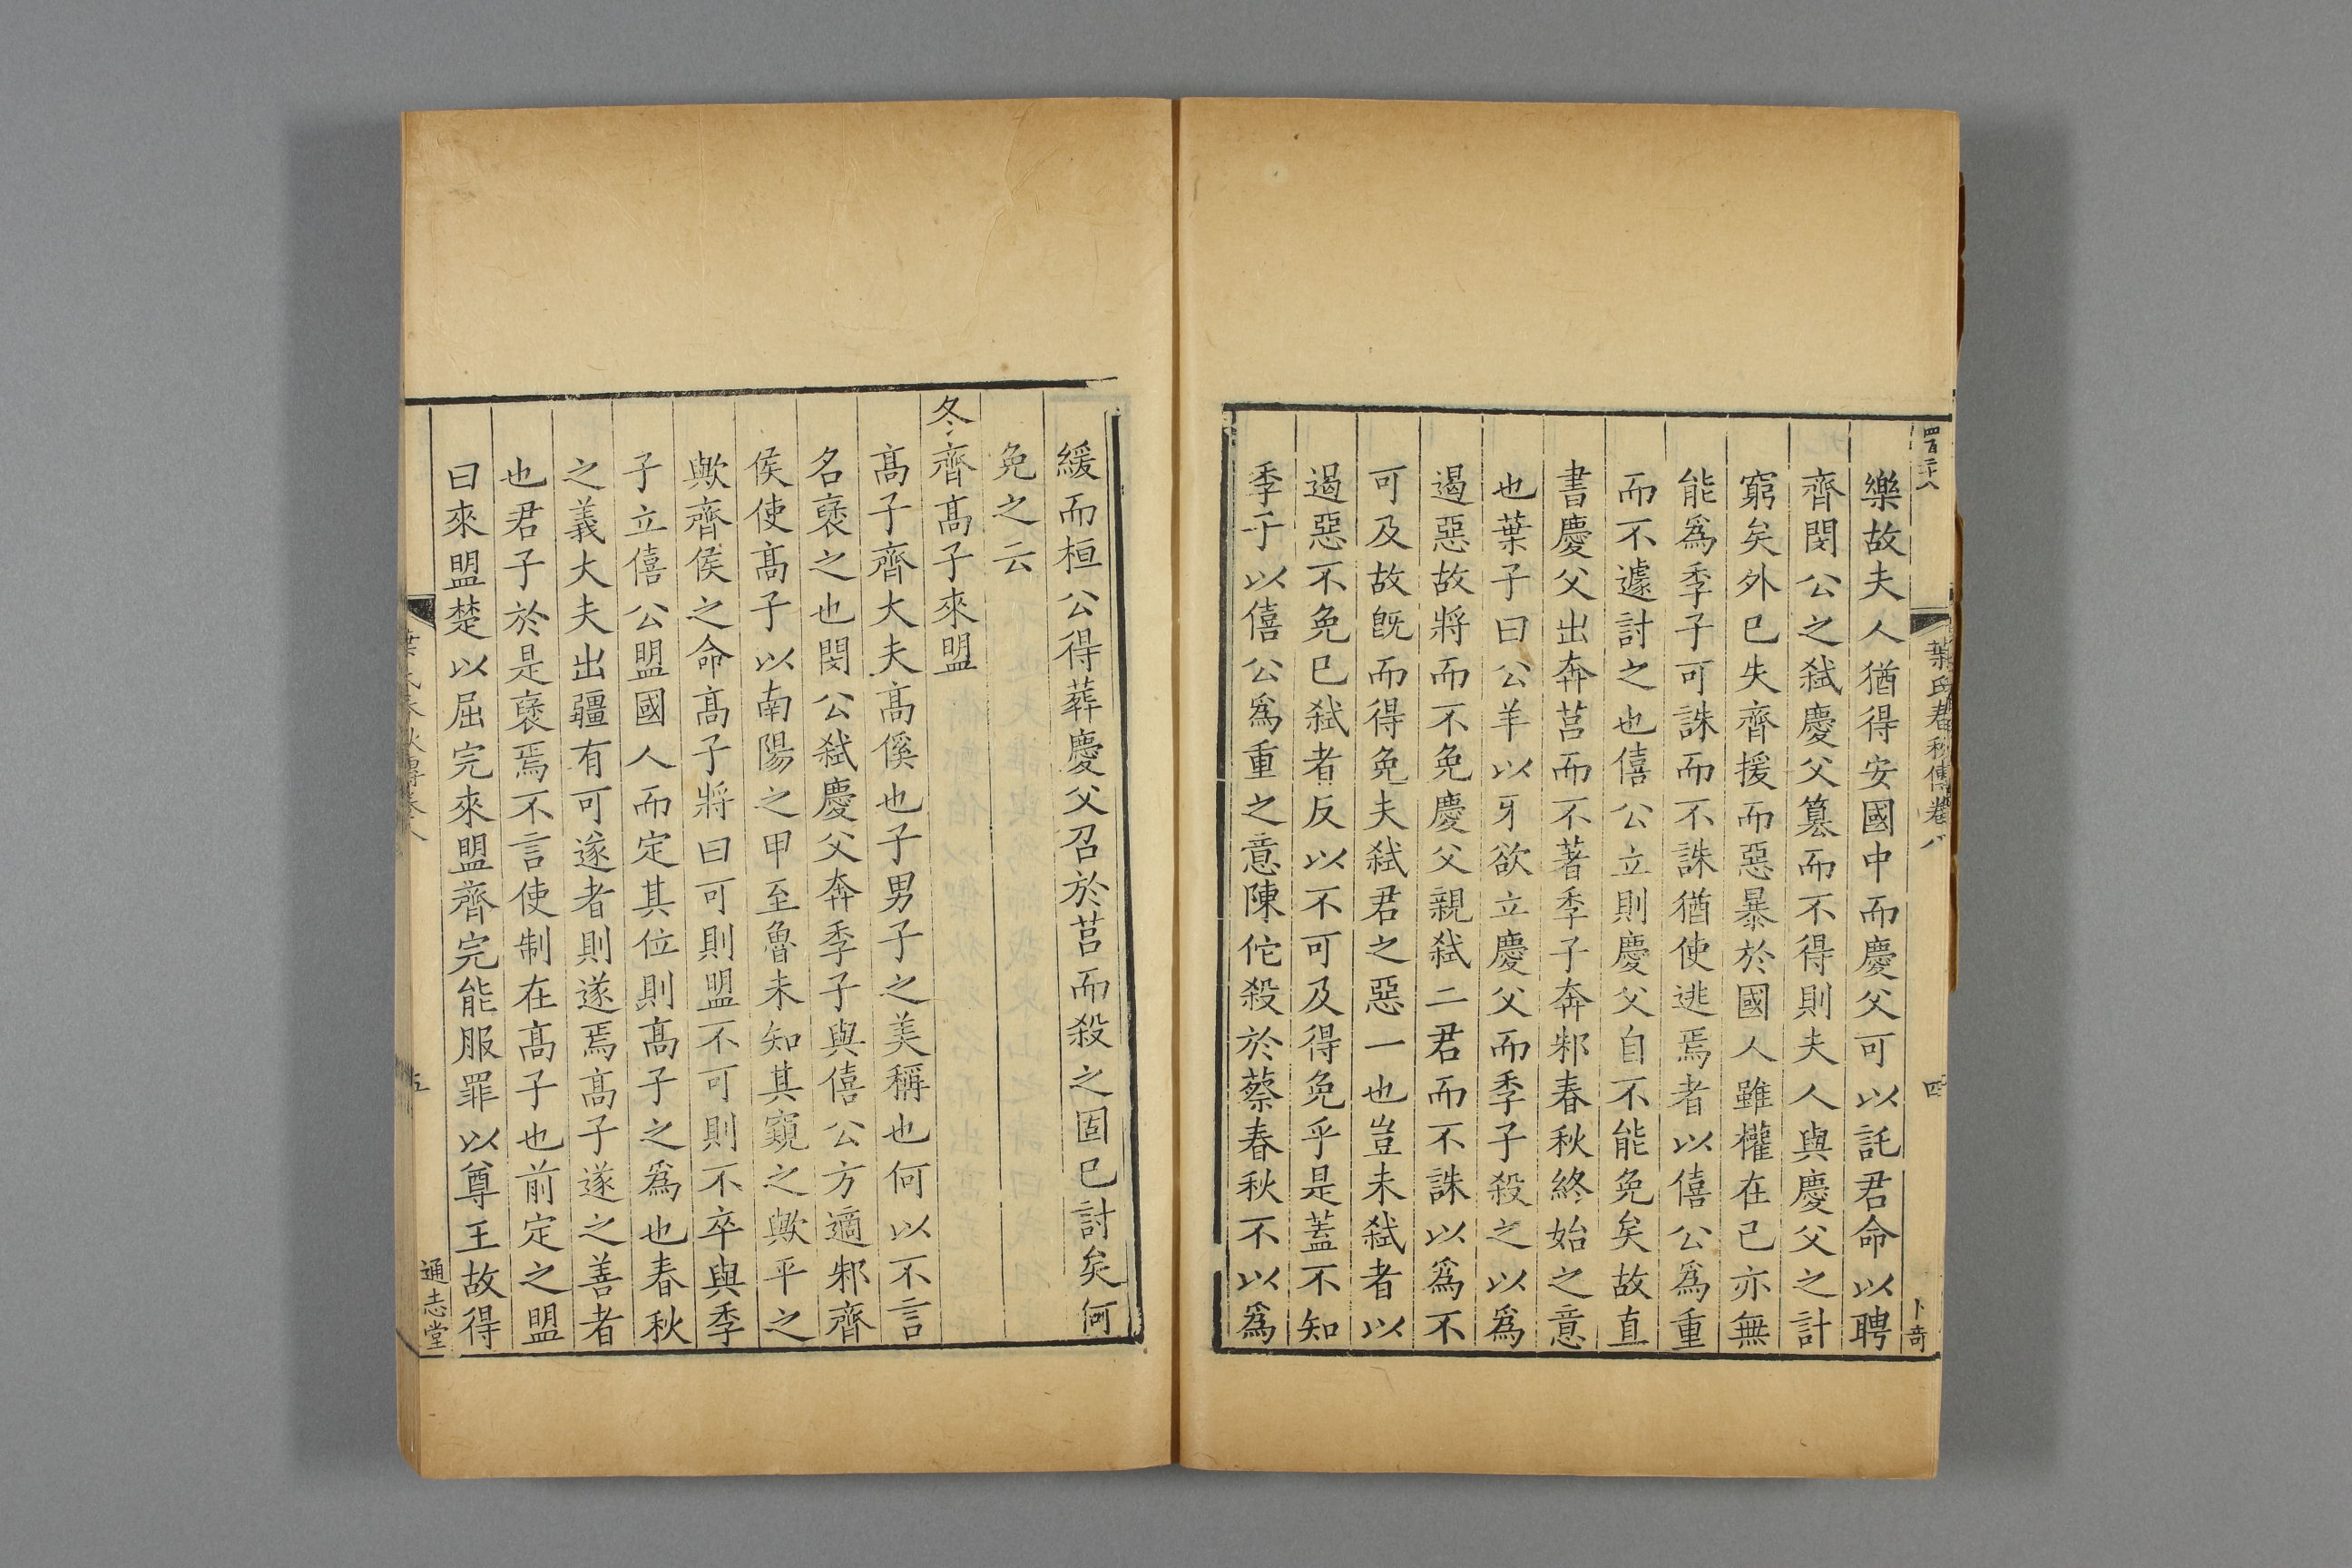 四百二十八 葉氏春秋傳卷八 四 卜奇
樂故夫人猶得安國中而慶父可以託君命以聘
齊閔公之弑慶父篡而不得則夫人與慶父之計
窮矣外已失齊援而惡暴於國人雖權在己亦無
能爲季子可誅而不誅猶使逃焉者以僖公爲重
而不遽討之也僖公立則慶父自不能免矣故直
書慶父出奔莒而不著季子奔邾春秋終始之意
也葉子曰公羊以牙欲立慶父而季子殺之以爲
遏惡故將而不免慶父親弑二君而不誅以爲不
可及故旣而得免夫弑君之惡一也豈未弑者以
遏惡不免已弑者反以不可及得免乎是蓋不知
季子以僖公爲重之意陳佗殺於蔡春秋不以爲
緩而桓公得葬慶父召於莒而殺之固已討矣何
免之云
冬齊髙子來盟
髙子齊大夫髙傒也子男子之美稱也何以不言
名襃之也閔公弑慶父奔季子與僖公方適邾齊
侯使髙子以南陽之甲至魯未知其窺之歟平之
歟齊侯之命髙子將曰可則盟不可則不卒與季
子立僖公盟國人而定其位則髙子之爲也春秋
之義大夫出疆有可遂者則遂焉髙子遂之善者
也君子於是襃焉不言使制在髙子也前定之盟
曰來盟楚以屈完來盟齊完能服罪以尊王故得
五 通志堂